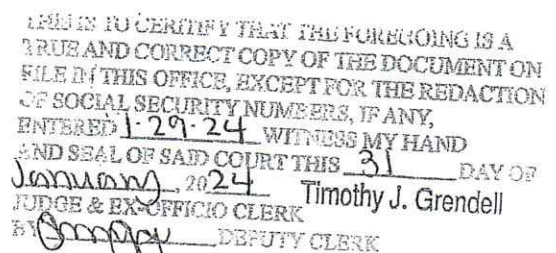 THIS IS TO CERTIFY THAT THE FOREGOING IS A
TRUE AND CORRECT COPY OF THE DOCUMENT ON
FILE IN THIS OFFICE, EXCEPT FOR THE REDACTION
OF SOCIAL SECURITY NUMBERS, IF ANY,
ENTERED 1-29-24 WITNESS MY HAND
AND SEAL OF SAID COURT THIS 31 DAY OF
January, 2024 Timothy J. Grendell
JUDGE & EX-OFFICIO CLERK
BY DEPUTY CLERK